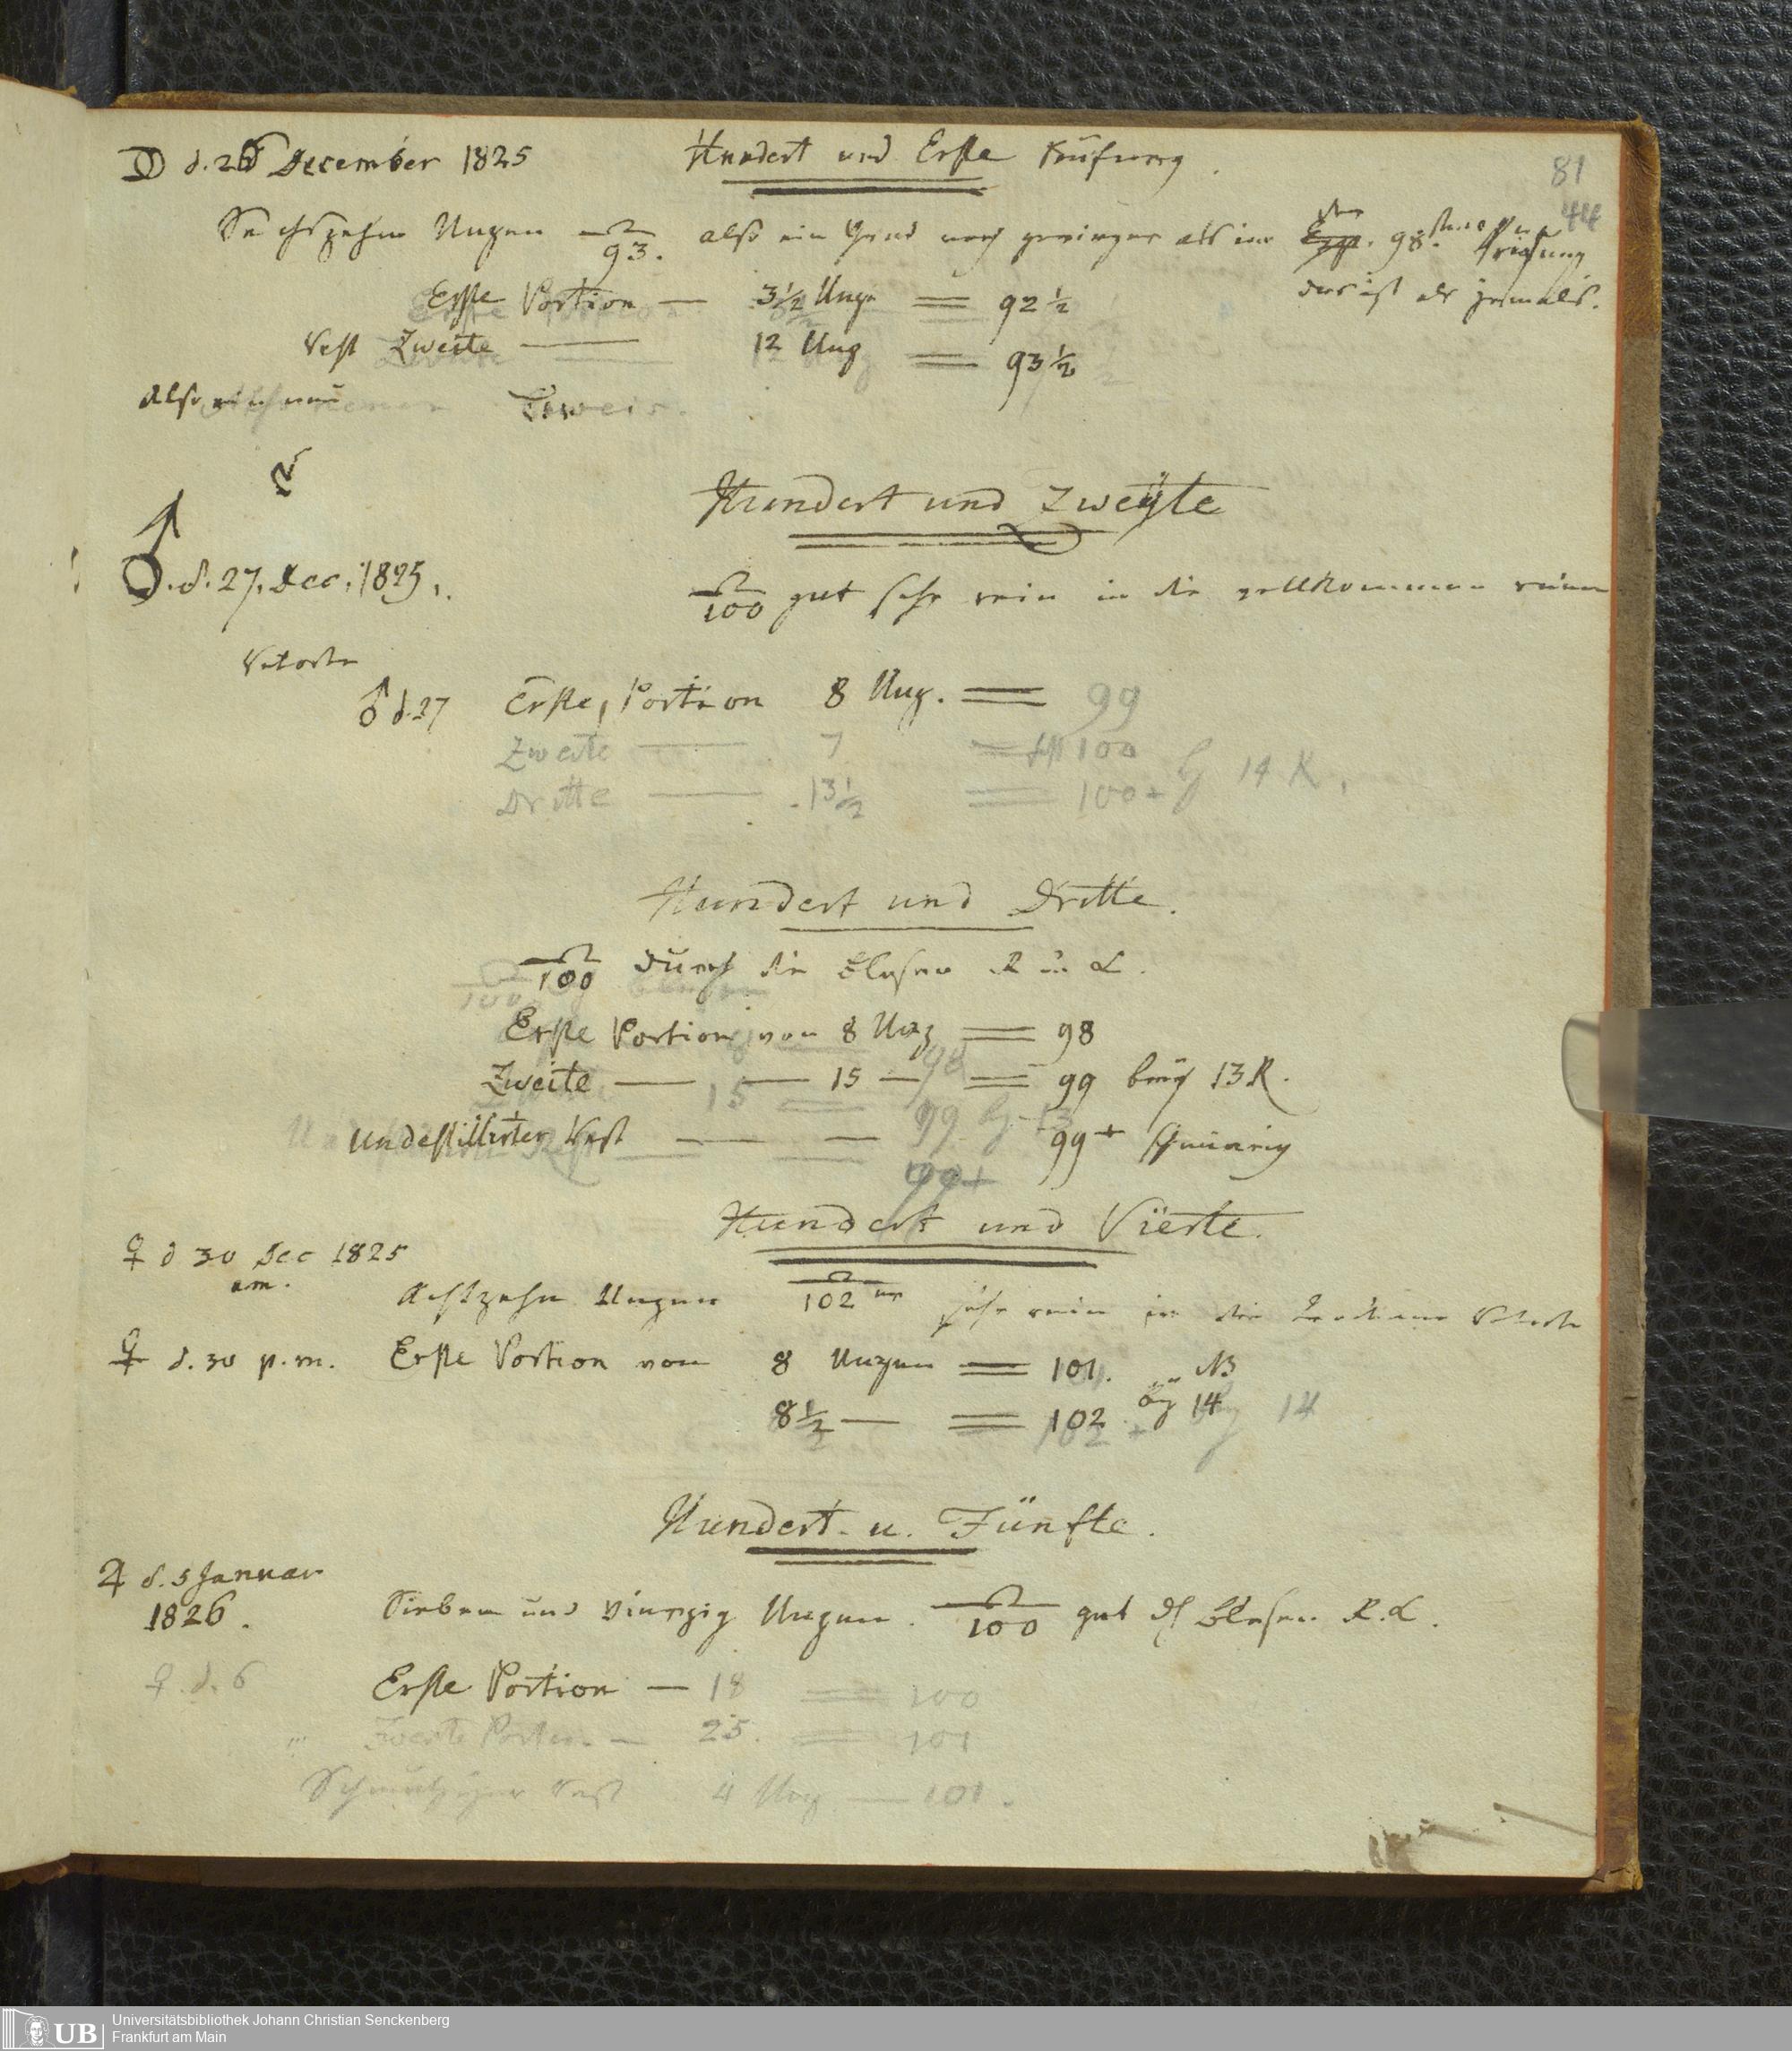 ☽ d. 26 December 1825 Hundert und Erste Prüfung.
81
44
Sechszehn Unzen 93. also ein Grad noch geringer als in der 98.
Erste Portion — 3½ Unze = 92½ das ist als jemals.
Rest Zweite — 12 Unz = 93½
Also ein neuer Beweis.
Hundert und Zweÿte
♂. d. 27. Dec. 1825.
100 gut sehr rein in die vollkommen reine
Retorte
♂ d. 27 Erste Portion 8 Unz. = 99
Zweite — 7 = 100
Dritte — 13½ = 100+ 14 R.
Hundert und Dritte.
100 durch die Blasen R u. L.
Erste Portion von 8 Unz = 98
Zweite — — 15 — = 99 beÿ 13 R.
Undestillirter Rest — — 99+
Hundert und Vierte.
♀ d 30 Dec 1825
am. Achtzehn Unzen 102 sehr rein in die Retorte
♀ d. 30 p.m. Erste Portion von 8 Unzen = 101. NB
8½ — = 102 bÿ 14
Hundert u. Fünfte.
♃ d. 5 Januar
1826. Sieben und vierzig Unzen. 100 gut d. Blasen R. L.
♀ d. 6 Erste Portion — 18 = 100
" Zweite Portion — 25. = 101
Schmutziger Rest 4 Unz — 101.
Universitätsbibliothek Johann Christian Senckenberg
UB Frankfurt am Main